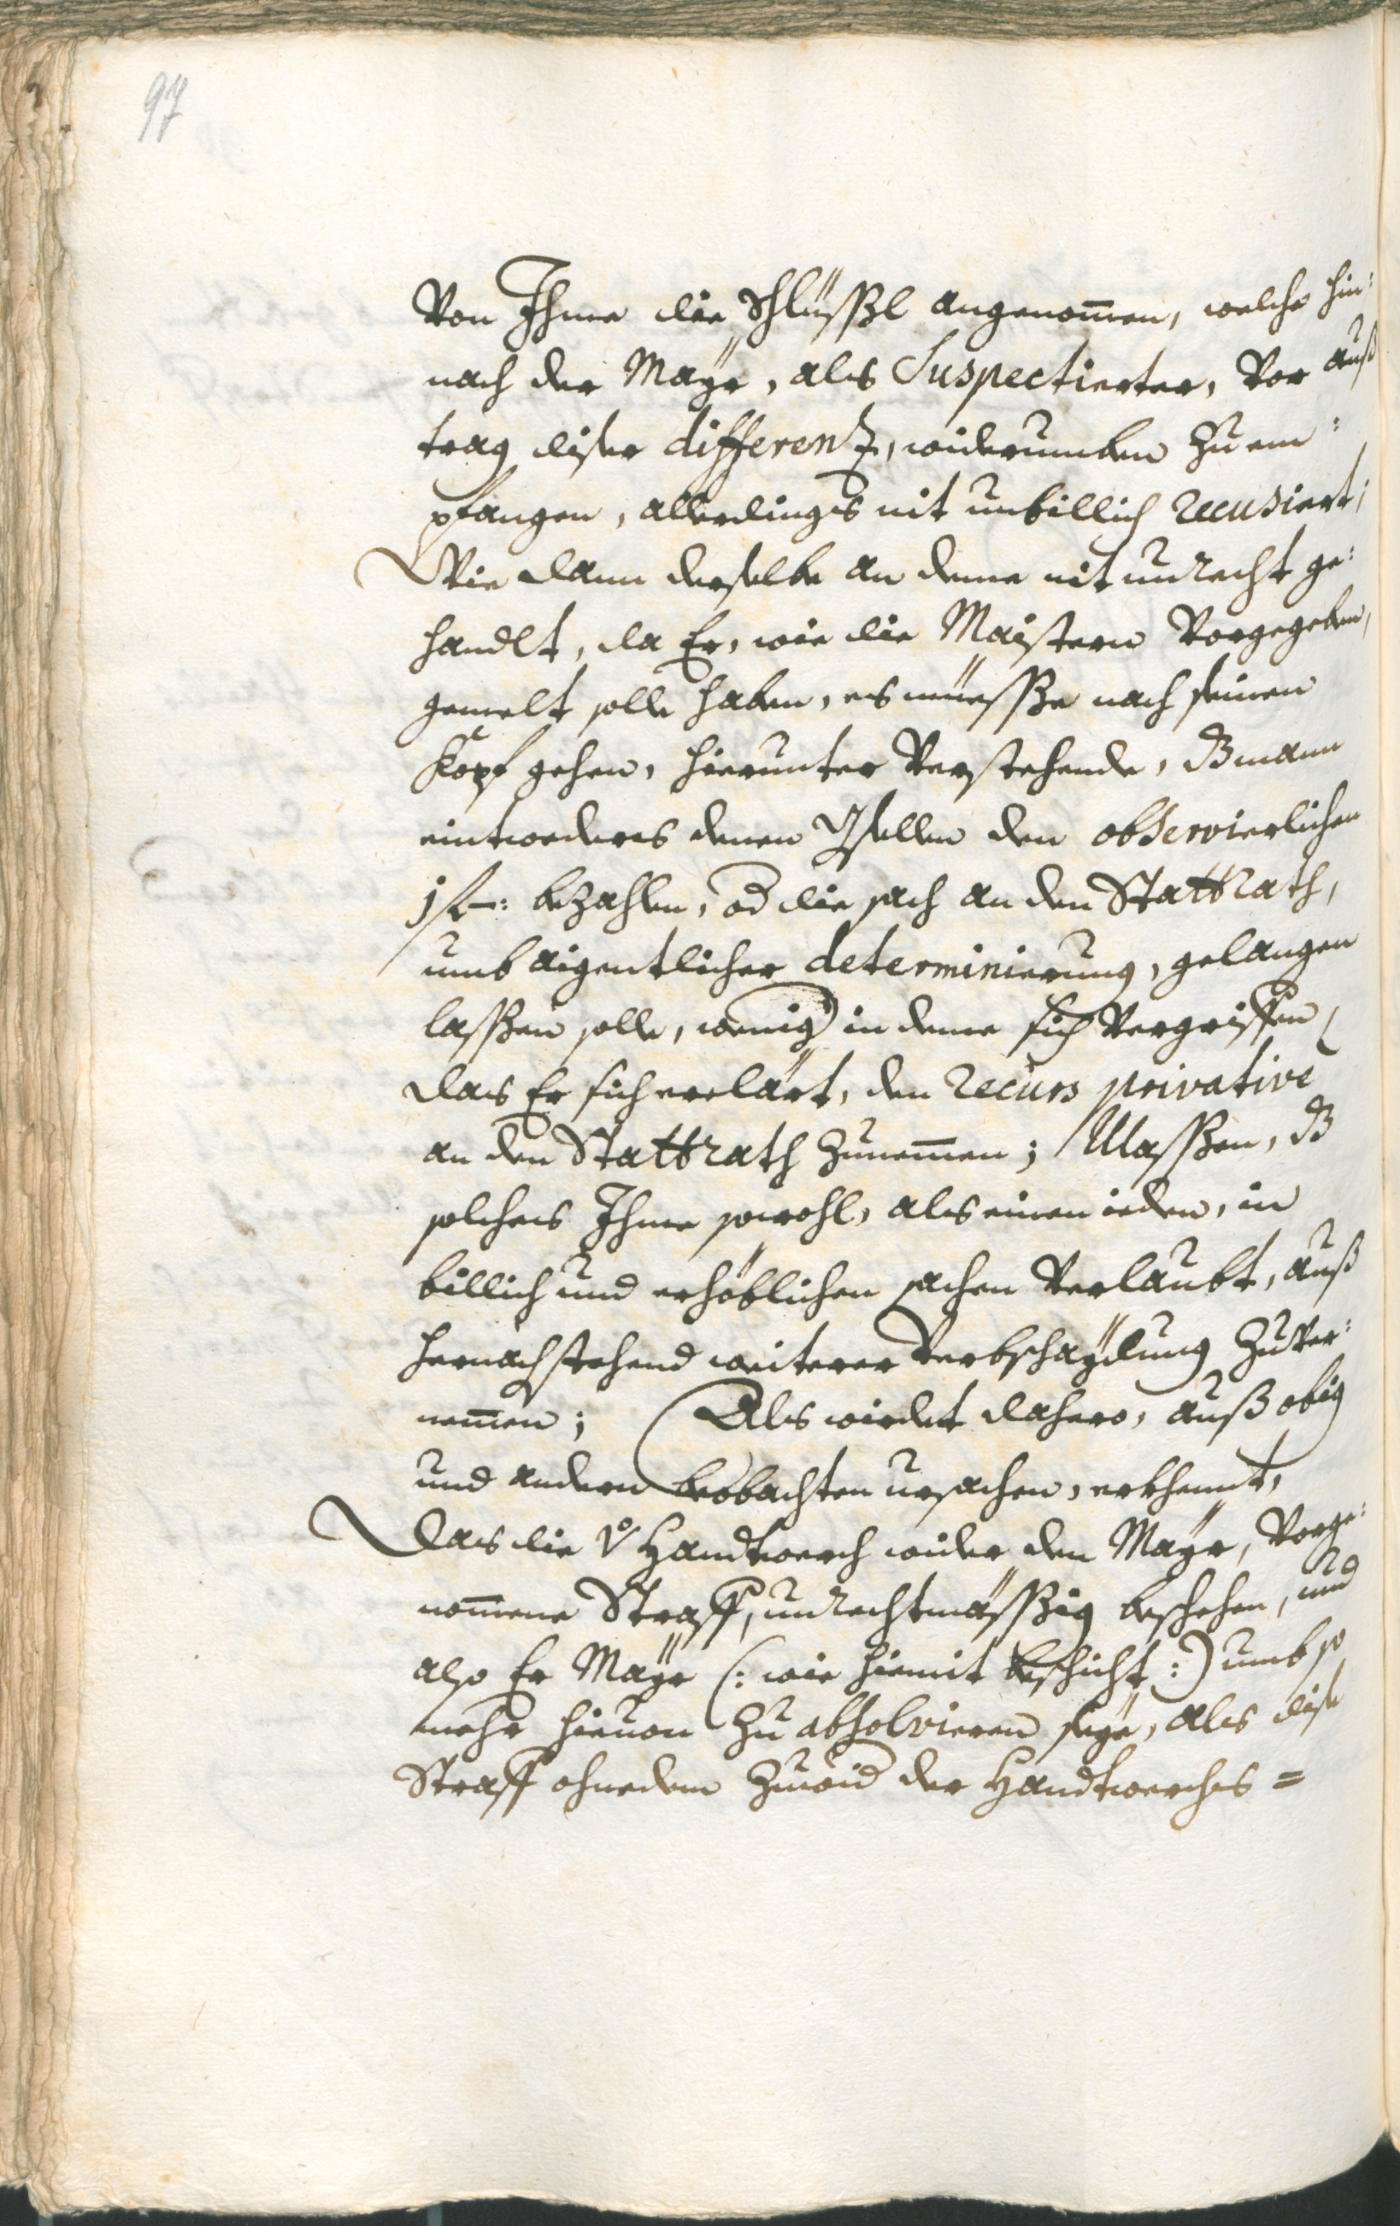 97
Von Ihme die Schlüßl angenom̄en, welche hin:
nach der Maÿr, als Suspectierter, Vor auß
trag diser differenz, widerumben zu em:
pfangen, allerdings nit unbillich recusiert;
Wie dann derselbe an deme nit unrecht ge:
handlt, da Er, wie die Maistern Vorgegeben,
gemelt solle haben, es müesße nach seinen
Kopf gehen, hierunter Verstehende, dz mann
eintweders denen Gsellen den observierlichen
1 f: bezahlen, od die sach an den Stattrath,
umb aigentlicher determinierung, gelangen
lasßen solle, wenig in deme sich Vergriffen,
das Er sich erclärt, den recurs privative
an den Stattrath zunem̄en; Masßen, dz
solches Ihme sowohl, als einen ieden, in
billich und erhöblichen sachen Verlaubt, auß
hernachstehend weiterer Verbschaÿdung zuver:
nem̄en; Als wirdet dahero, auß obig
und andern beobachten ursachen, erkhennt,
Das die Vo Handtwerch wider den Maÿr, Vorge:
nom̄ene Straff, unrechtmäsßig beschehen, und
also Er Maÿr (: wie hiemit beschicht :) umb so
mehr hieuon zu absolvieren seÿe, als dise
Straff ohnedem zuwid der Handtwerchs =